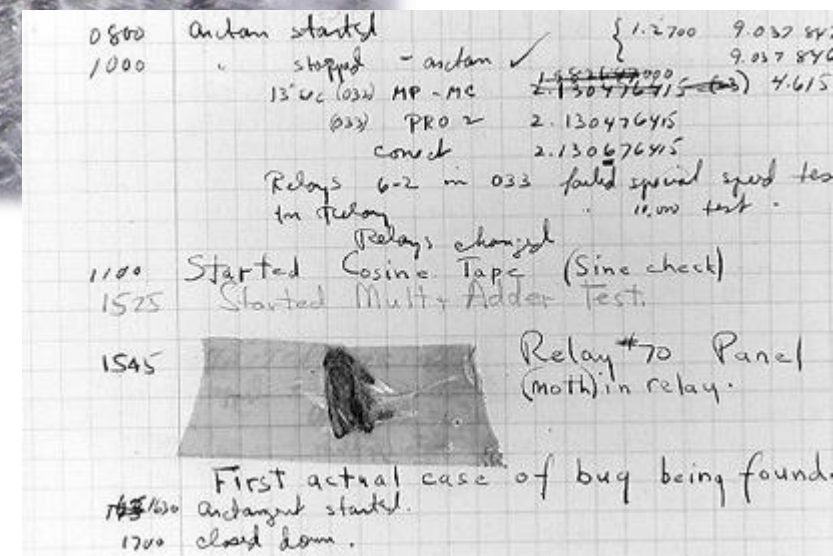 0800 Antan started { 1.2700 9.037 847
1000 " stopped - antan ✓ 9.037 846
13" uc (032) MP - MC 2.130476415 4.615
(033) PRO 2 2.130476415
conect 2.130676415
Relays 6-2 in 033 failed special speed tes
in relay 10,000 test .
Relays changed
1100 Started Cosine Tape (Sine check)
1525 Started Mult + Adder Test.
1545 Relay #70 Panel
(moth) in relay.
First actual case of bug being found.
1630 Antangent started.
1700 closed down .